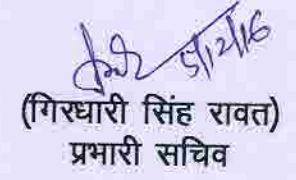 5/12/16
(गिरधारी सिंह रावत)
प्रभारी सचिव